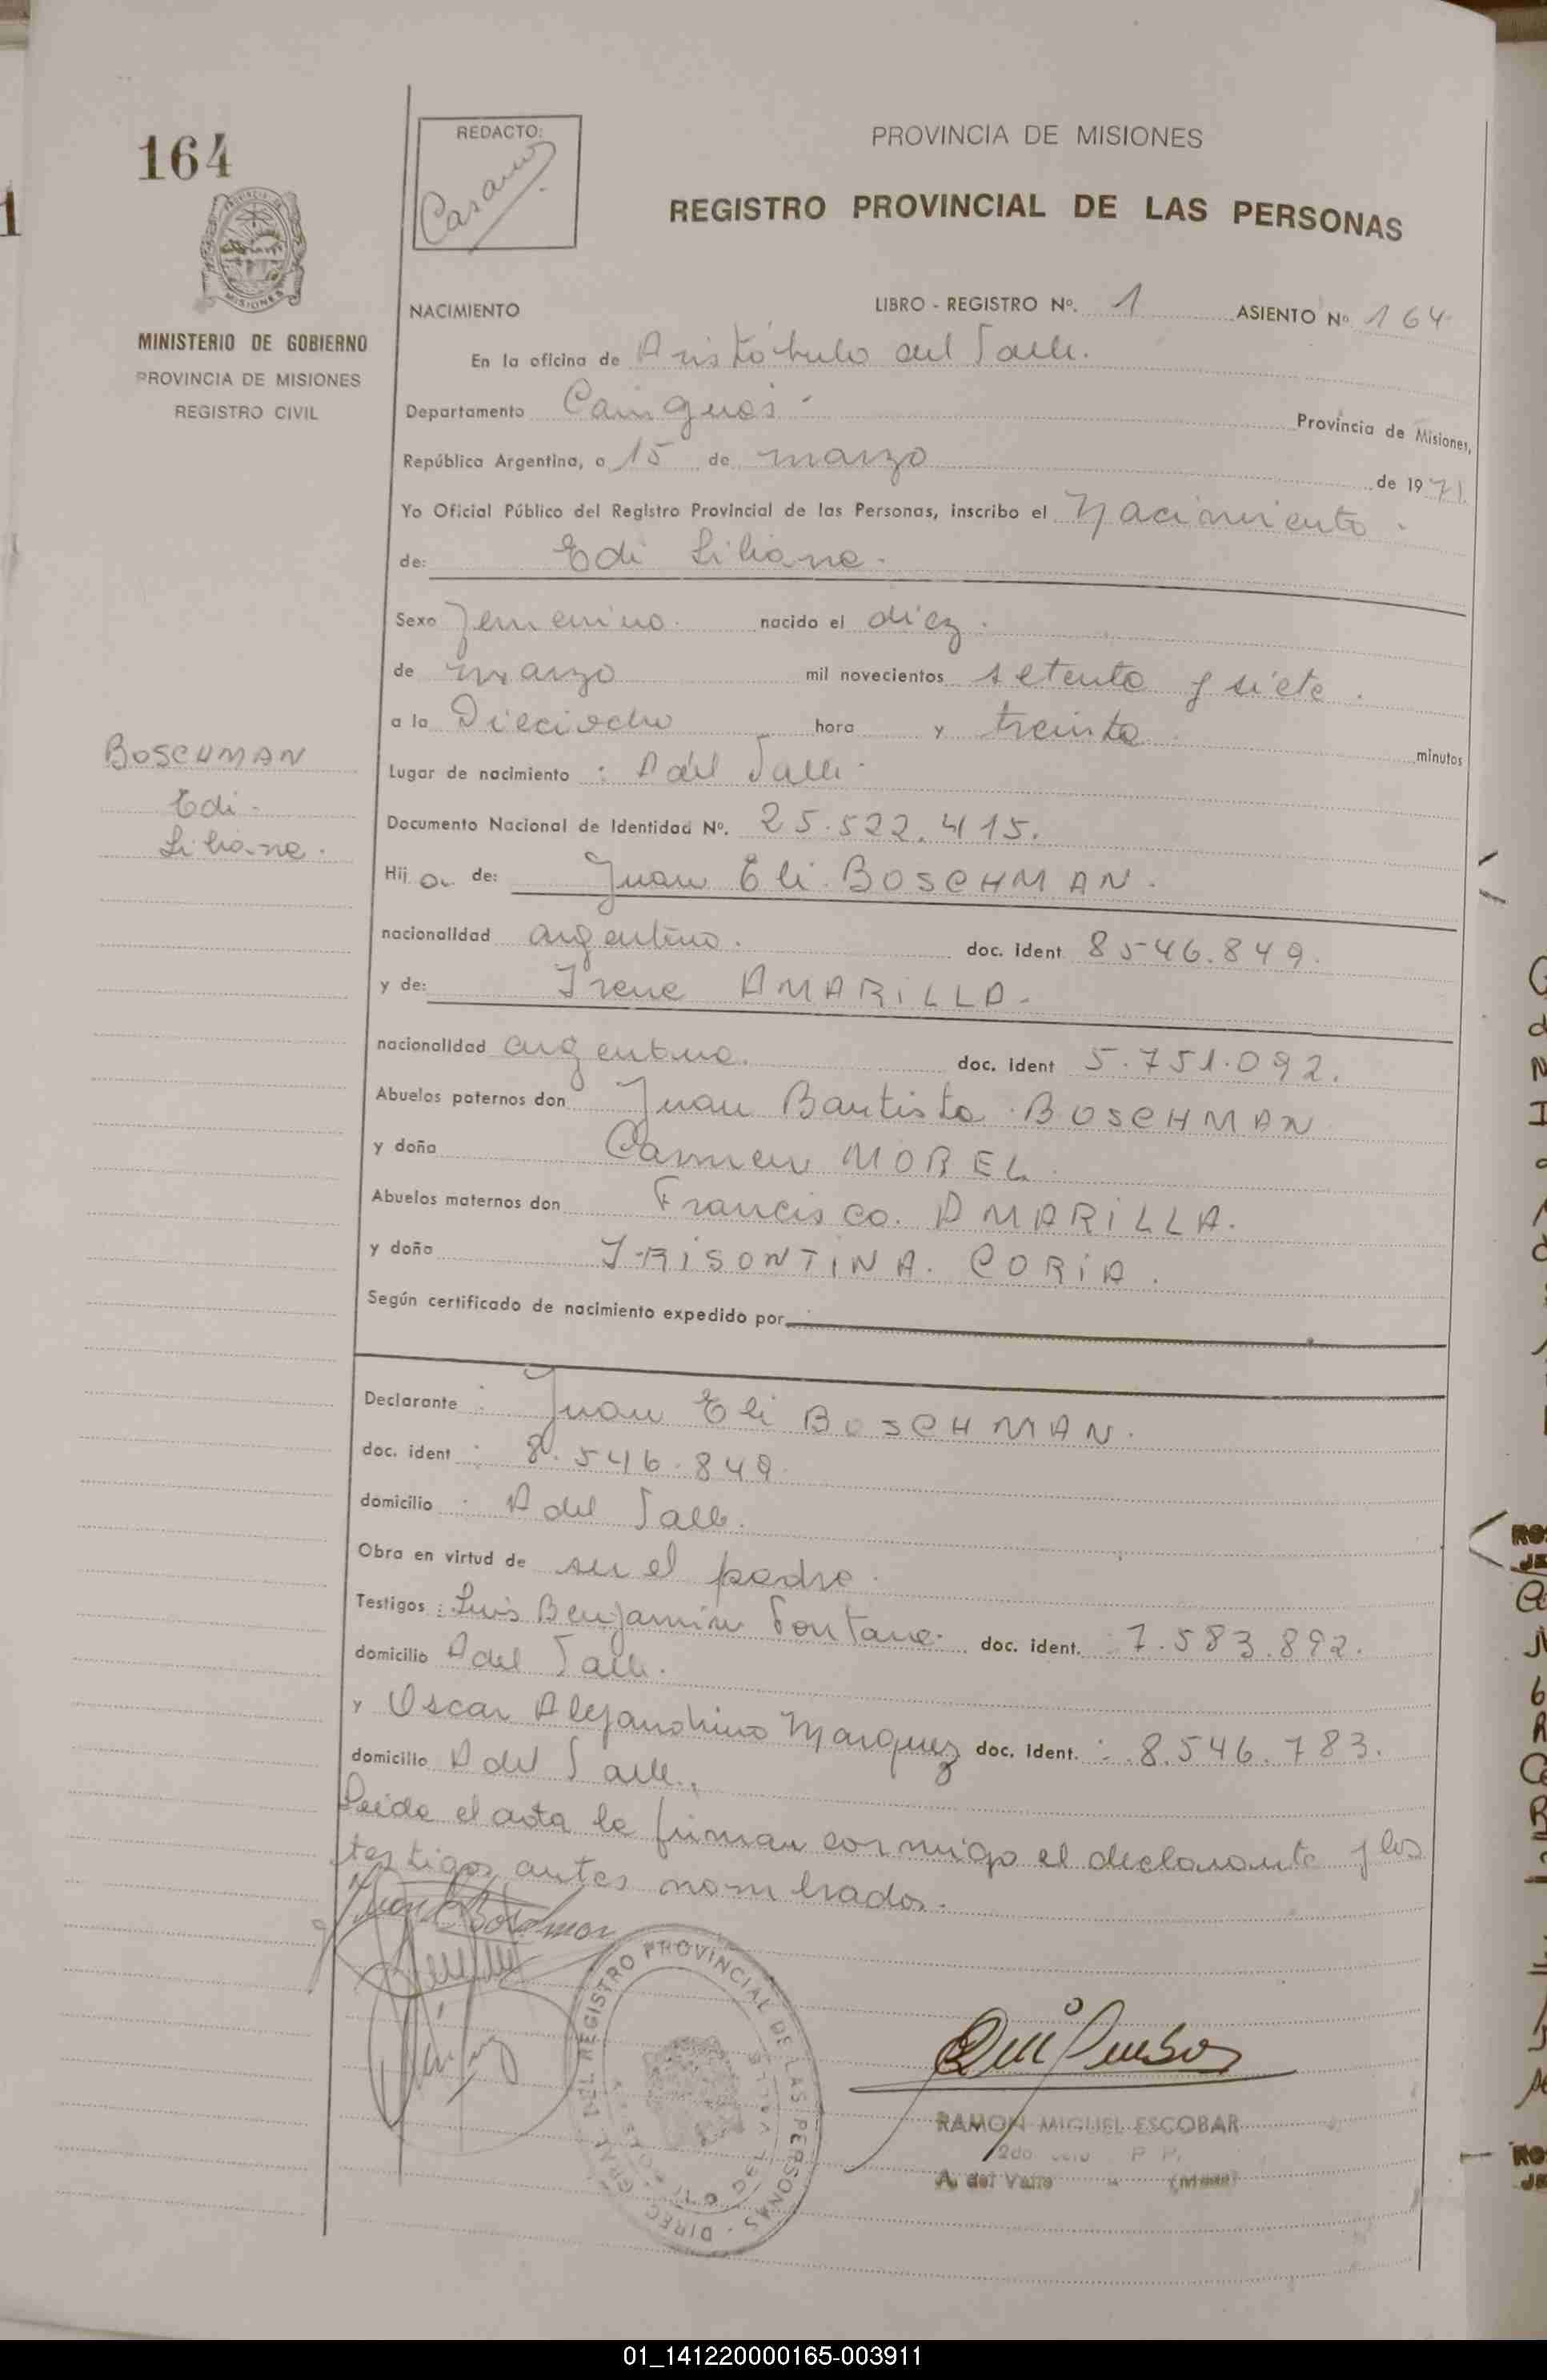 164
REDACTO:
PROVINCIA DE MISIONES
REGISTRO PROVINCIAL DE LAS PERSONAS
MISIONES
MINISTERIO DE GOBIERNO
PROVINCIA DE MISIONES
REGISTRO CIVIL
NACIMIENTO LIBRO - REGISTRO Nº. 1 ASIENTO Nº 164
En la oficina de Aristóbulo del Valle.
Departamento Cainguás. Provincia de Misiones,
República Argentina, a 15 de marzo de 1971
Yo Oficial Público del Registro Provincial de las Personas, inscribo el Nacimiento
de: Edi Liliana.
Sexo Femenino. nacido el diez.
de marzo mil novecientos setenta y siete.
a la Dieciocho hora y treinta minutos
Lugar de nacimiento : A del Valle.
BOSCHMAN
Edi.
Liliana.
Documento Nacional de Identidad Nº. 25.522.415.
Hij a de: Juan Eli BOSCHMAN.
nacionalidad argentino. doc. ident 8546.849.
y de: Irene AMARILLA.
nacionalidad argentina. doc. ident 5.751.092.
Abuelos paternos don Juan Bautista BOSCHMAN
y doña Carmen MOREL
Abuelos maternos don Francisco. AMARILLA.
y doña IRISONTINA. CORIA.
Según certificado de nacimiento expedido por
Declarante : Juan Eli BOSCHMAN.
doc. ident : 8.546.849.
domicilio : A del Valle.
Obra en virtud de ser el padre.
Testigos : Luis Benjamín Fontana. doc. ident. 7.583.892.
domicilio A del Valle.
y Oscar Alejandrino Marquez doc. ident. : 8.546.783.
domicilio A del Valle.
Leida el acta la firman conmigo el declarante y los
testigos antes nombrados.
REGISTRO PROVINCIAL DE LAS PERSONAS
RAMON MIGUEL ESCOBAR
A. del Valle
01_141220000165-003911